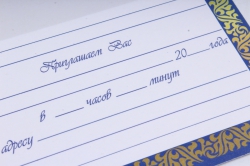 Приглашаем Вас
20 года
в часов минут
адресу